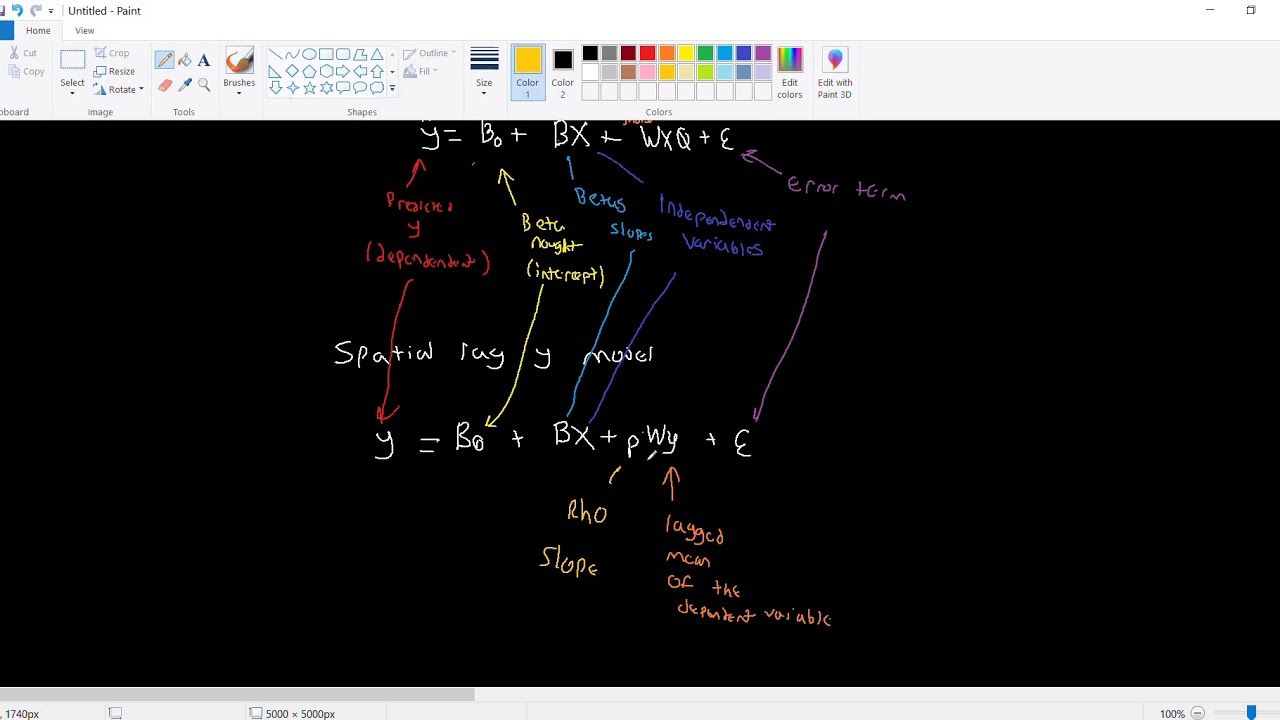 Untitled - Paint
Home
View
Cut
Copy
Clipboard
Select
Crop
Resize
Rotate
Image
Tools
Brushes
Shapes
Outline
Fill
Size
Color 1
Color 2
Edit colors
Edit with Paint 3D
Colors
y = B0 + BX + WXθ + ε
Error term
Predicted
y
(dependendent)
Beta
nought
(intercept)
Betas
slopes
Independendent
variables
Spatial lag y model
y = B0 + BX + pWy + ε
Rho
Slope
lagged
mean
of the
dependent variable
1740px
5000 × 5000px
100%